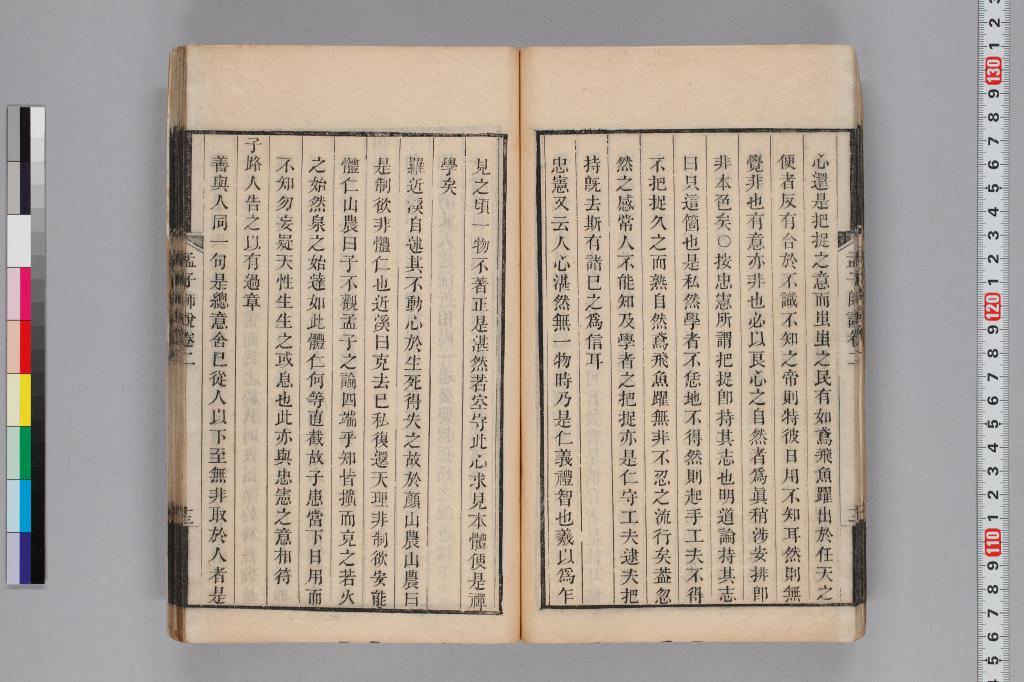 心還是把捉之意而蚩蚩之民有如鳶飛魚躍出於任天之
便者反有合於不識不知之帝則特彼日用不知耳然則無
覺非也有意亦非也必以良心之自然者為眞稍涉安排卽
非本色矣○按忠憲所謂把捉卽持其志也明道論持其志
曰只這箇也是私然學者不恁地不得然則起手工夫不得
不把捉久之而熟自然鳶飛魚躍無非不忍之流行矣葢忽
然之感常人不能知及學者之把捉亦是仁守工夫逮夫把
持旣去斯有諸已之爲信耳
忠憲又云人心湛然無一物時乃是仁義禮智也羲以爲乍
見之頃一物不著正是湛然若空守此心求見本體便是禪
學矣
羅近溪自述其不動心於生死得失之故於顏山農山農曰
是制欲非體仁也近溪曰克去已私復還天理非制欲安能
體仁山農曰子不觀孟子之論四端乎知皆擴而充之若火
之始然泉之始達如此體仁何等直截故子患當下日用而
不知勿妄疑天性生生之或息也此亦與忠憲之意相符
子路人告之以有過章
善與人同一句是總意舍已從人以下至無非取於人者是
孟子師說卷二